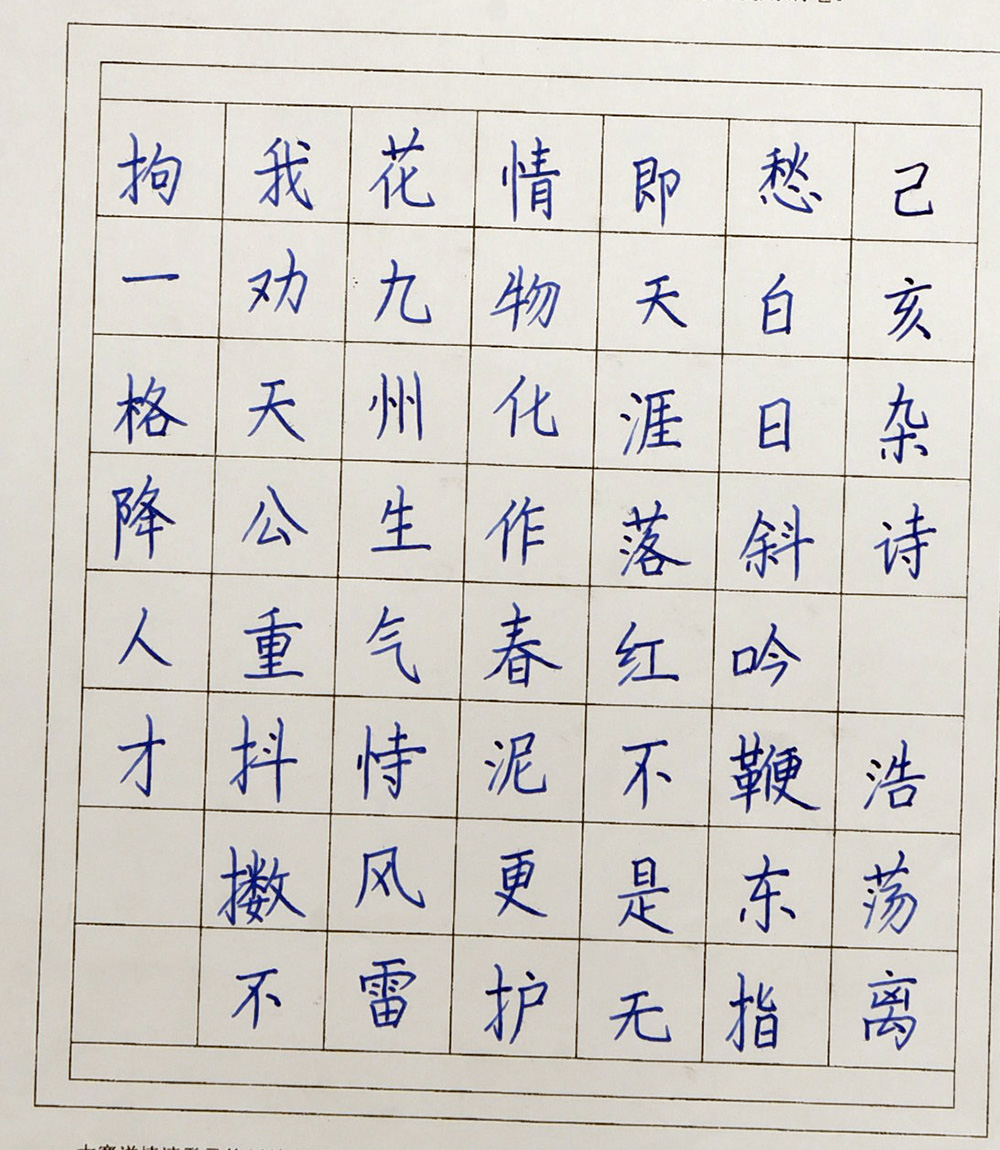 己亥杂诗 浩荡离
愁白日斜吟鞭东指
即天涯落红不是无
情物化作春泥更护
花九州生气恃风雷
我劝天公重抖擞不
拘一格降人才